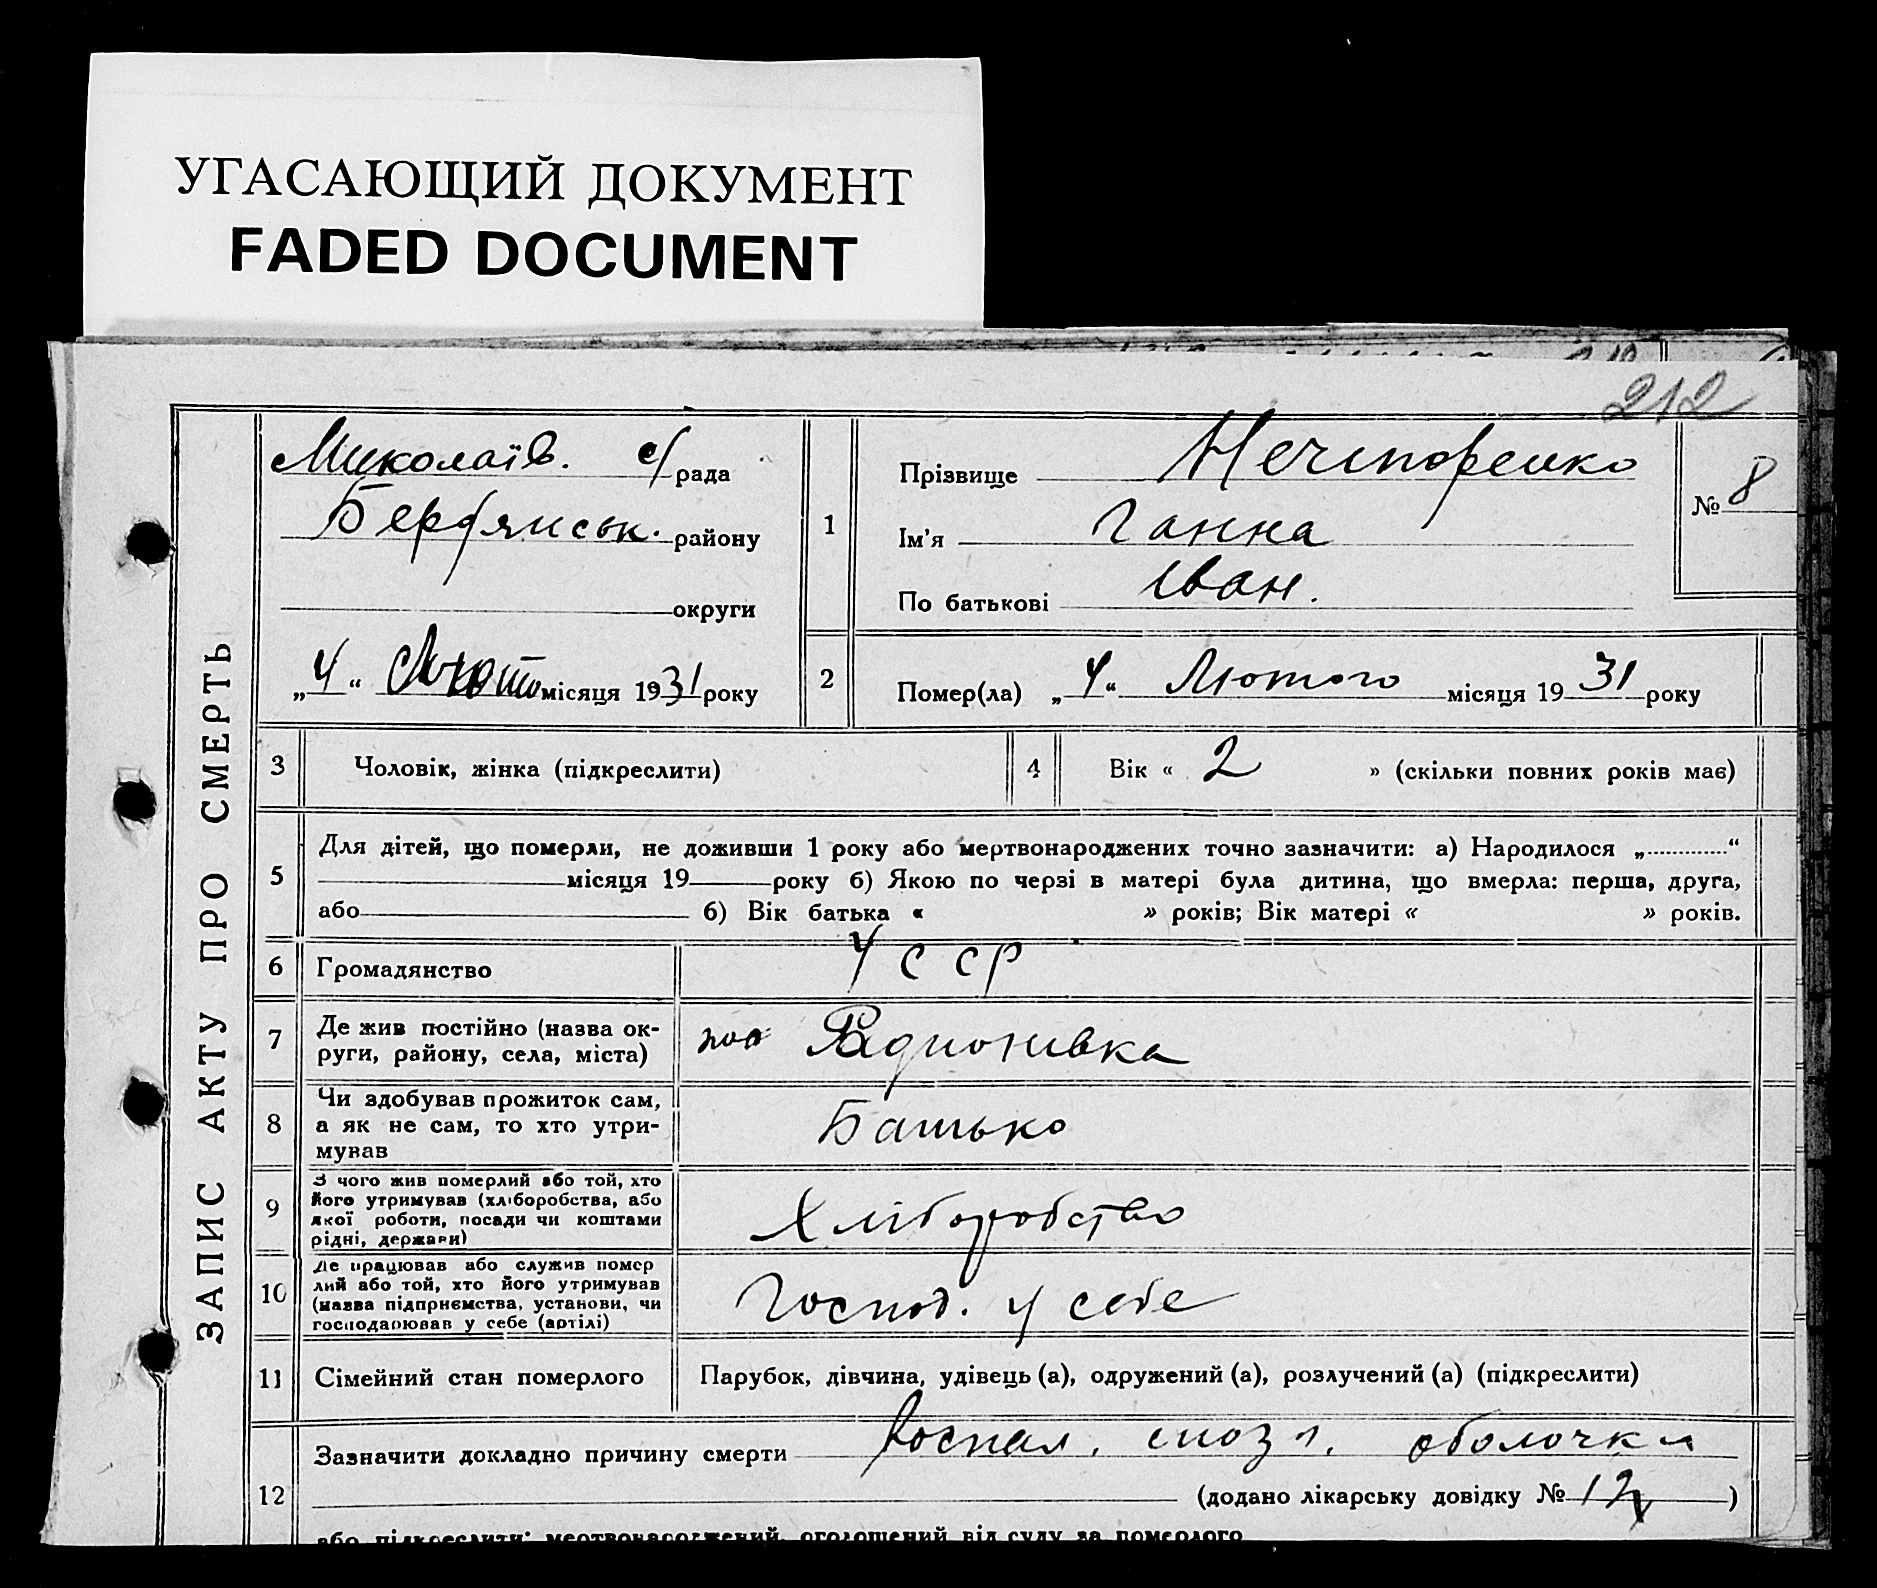 УГАСАЮЩИЙ ДОКУМЕНТ
FADED DOCUMENT
212
ЗАПИС АКТУ ПРО СМЕРТЬ
Миколаїв. с/рада
Бердянськ. району
округи
„4“ Люто місяця 1931 року
1
Прізвище Нечипоренко
Ім'я Ганна
По батькові Іван.
№ 8
2
Помер(ла) „4“ Лютого місяця 1931 року
3 Чоловік, жінка (підкреслити)
4 Вік « 2 » (скільки повних років має)
5 Для дітей, що померли, не доживши 1 року або мертвонароджених точно зазначити: а) Народилося „............“
місяця 19 року б) Якою по черзі в матері була дитина, що вмерла: перша, друга,
або б) Вік батька « » років; Вік матері « » років.
6 Громадянство УССР
7 Де жив постійно (назва ок-
руги, району, села, міста) Радионивка
8 Чи здобував прожиток сам,
а як не сам, то хто утри-
мував Батько
9 З чого жив померлий або той, хто
його утримував (хліборобства, або
якої роботи, посади чи коштами
рідні, держави) Хліборобство
10 Де працював або служив помер
лий або той, хто його утримував
(назва підприємства, установи, чи
господарював у себе (артілі) Господ. у себе
11 Сімейний стан померлого Парубок, дівчина, удівець (а), одружений (а), розлучений (а) (підкреслити)
12 Зазначити докладно причину смерти воспал. мозг. оболочки
(додано лікарську довідку № 12)
або підкреслити: мертвонароджений, оголошений від суду за померлого